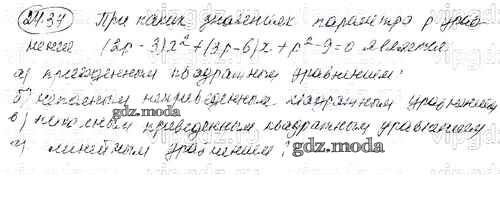 24.34 При каких значениях параметра p урав-
нение (2p - 3)x² + (3p - 6)x + p² - 9 = 0 является
а) приведенным квадратным уравнением?
б) неполным неприведенным квадратным уравнением
в) неполным приведенным квадратным уравнением
г) линейным уравнением?
gdz.moda
gdz.moda
gdz.moda